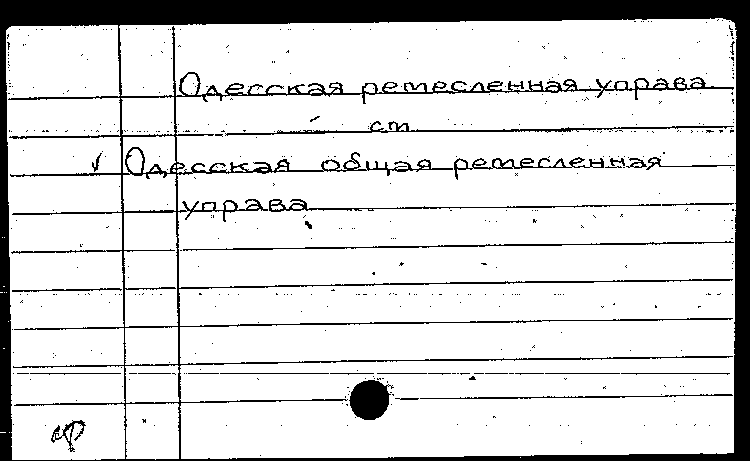 Одесская ремесленная управа
см
✓ Одесская общая ремесленная
управа